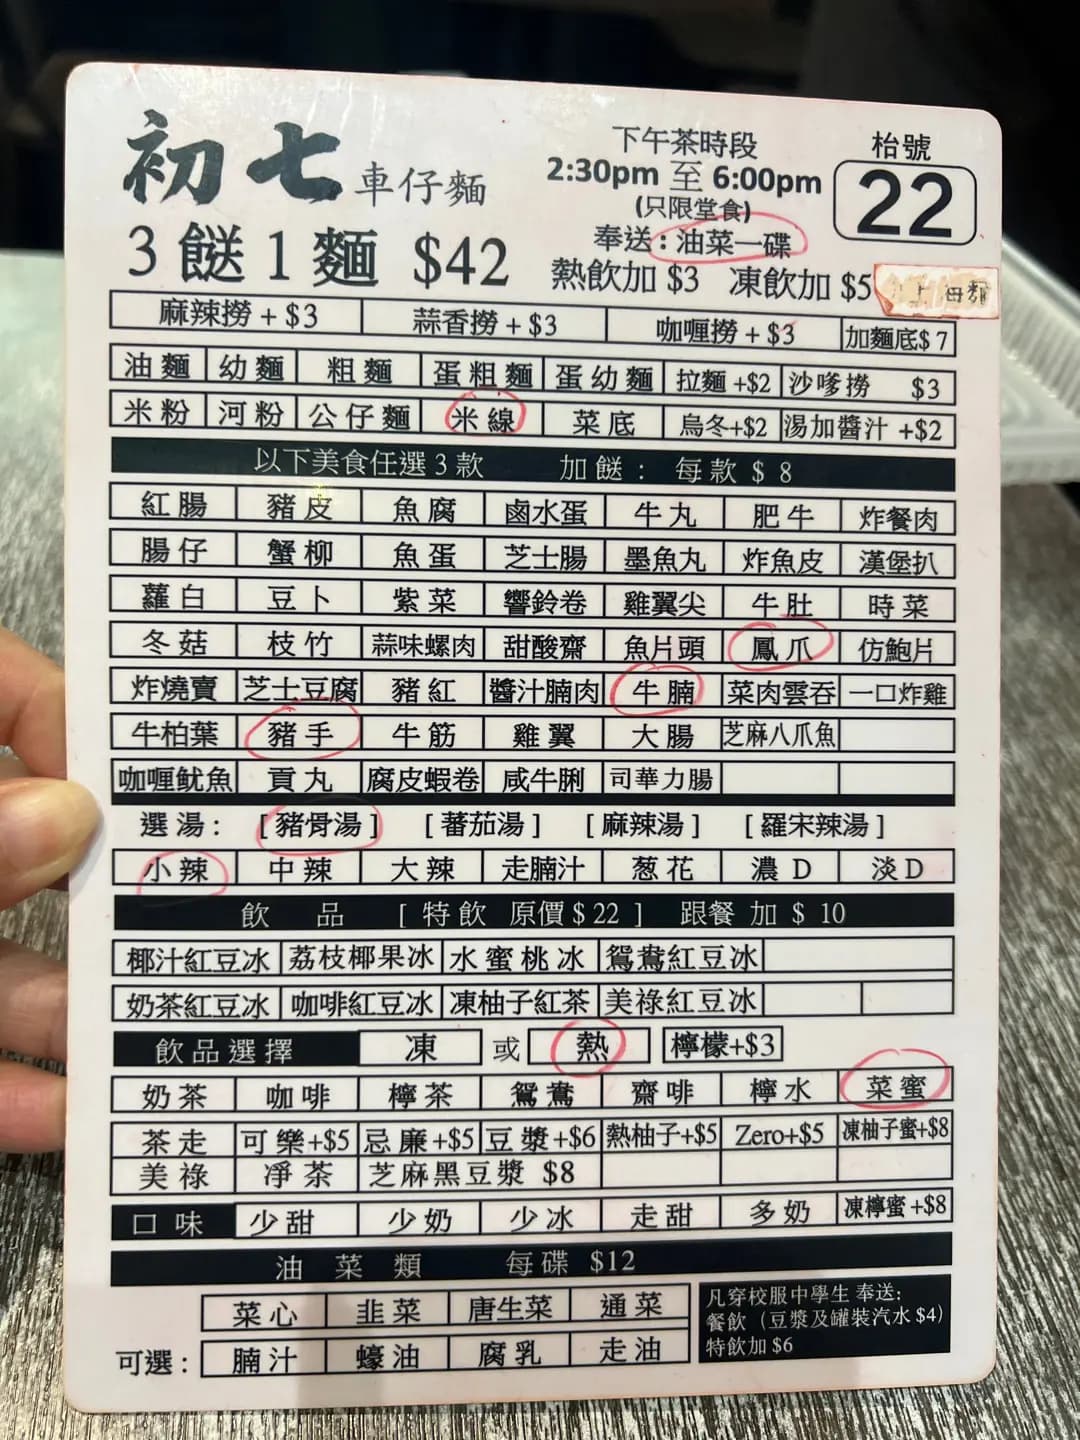 初七 車仔麵
下午茶時段
2:30pm 至 6:00pm
(只限堂食)
枱號
22
3 餸 1 麵 $42
奉送：油菜一碟
熱飲加 $3 凍飲加 $5
麻辣撈 + $3 蒜香撈 + $3 咖喱撈 + $3 加麵底$ 7
油麵 幼麵 粗麵 蛋粗麵 蛋幼麵 拉麵 +$2 沙嗲撈 $3
米粉 河粉 公仔麵 米線 菜底 烏冬+$2 湯加醬汁 +$2
以下美食任選 3 款 加餸： 每款 $ 8
紅腸 豬皮 魚腐 鹵水蛋 牛丸 肥牛 炸餐肉
腸仔 蟹柳 魚蛋 芝士腸 墨魚丸 炸魚皮 漢堡扒
蘿白 豆卜 紫菜 響鈴卷 雞翼尖 牛肚 時菜
冬菇 枝竹 蒜味螺肉 甜酸齋 魚片頭 鳳爪 仿鮑片
炸燒賣 芝士豆腐 豬紅 醬汁腩肉 牛腩 菜肉雲吞 一口炸雞
牛柏葉 豬手 牛筋 雞翼 大腸 芝麻八爪魚
咖喱魷魚 貢丸 腐皮蝦卷 咸牛脷 司華力腸
選湯： [ 豬骨湯 ] [ 蕃茄湯 ] [ 麻辣湯 ] [ 羅宋辣湯 ]
小辣 中辣 大辣 走腩汁 葱花 濃 D 淡 D
飲品 [ 特飲 原價 $ 22 ] 跟餐 加 $ 10
椰汁紅豆冰 荔枝椰果冰 水蜜桃冰 鴛鴦紅豆冰
奶茶紅豆冰 咖啡紅豆冰 凍柚子紅茶 美祿紅豆冰
飲品選擇 凍 或 熱 檸檬+$3
奶茶 咖啡 檸茶 鴛鴦 齋啡 檸水 菜蜜
茶走 可樂+$5 忌廉+$5 豆漿+$6 熱柚子+$5 Zero+$5 凍柚子蜜+$8
美祿 凈茶 芝麻黑豆漿 $8
口味 少甜 少奶 少冰 走甜 多奶 凍檸蜜 +$8
油菜類 每碟 $12
菜心 韭菜 唐生菜 通菜
可選： 腩汁 蠔油 腐乳 走油
凡穿校服中學生 奉送：
餐飲（豆漿及罐裝汽水 $4）
特飲加 $6